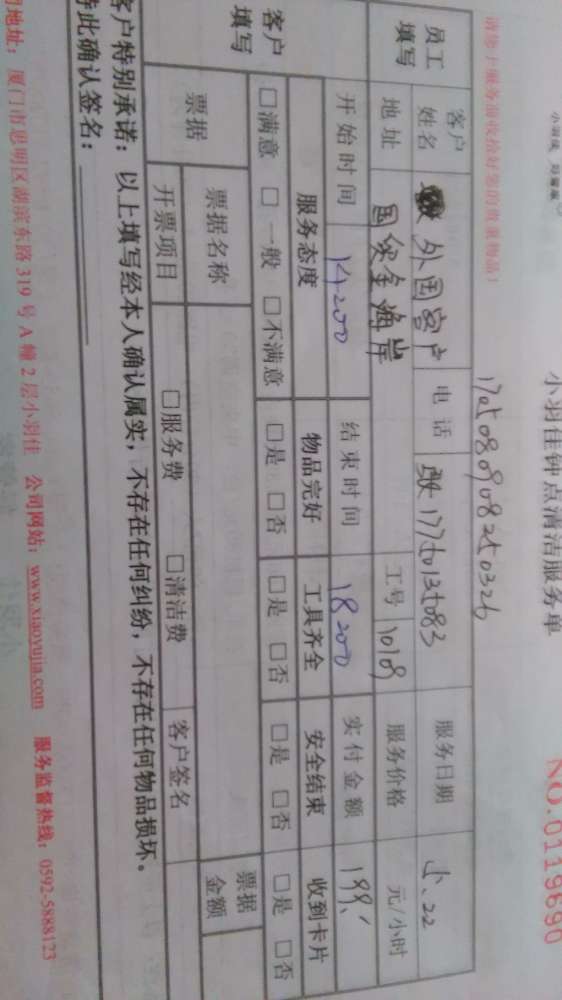 小羽佳钟点清洁服务单
NO.0119690
请您于服务前收拾好您的贵重物品！
员工填写 客户姓名 外国客户 电话 服务日期
地址 国贸金海岸 工号 1019 服务价格 元/小时
开始时间 14:00 结束时间 18:00 实付金额 199.
客户填写 服务态度 物品完好 工具齐全 安全结束 收到卡片
□满意 □一般 □不满意 □是 □否 □是 □否 □是 □否 □是 □否
票据 票据名称 票据金额
开票项目 □服务费 □清洁费 客户签名
客户特别承诺：以上填写经本人确认属实，不存在任何纠纷，不存在任何物品损坏。
特此确认签名：
司地址：厦门市思明区湖滨东路319号A幢2层小羽佳 公司网站：www.xiaoyujia.com 服务监督热线：0592-5888123